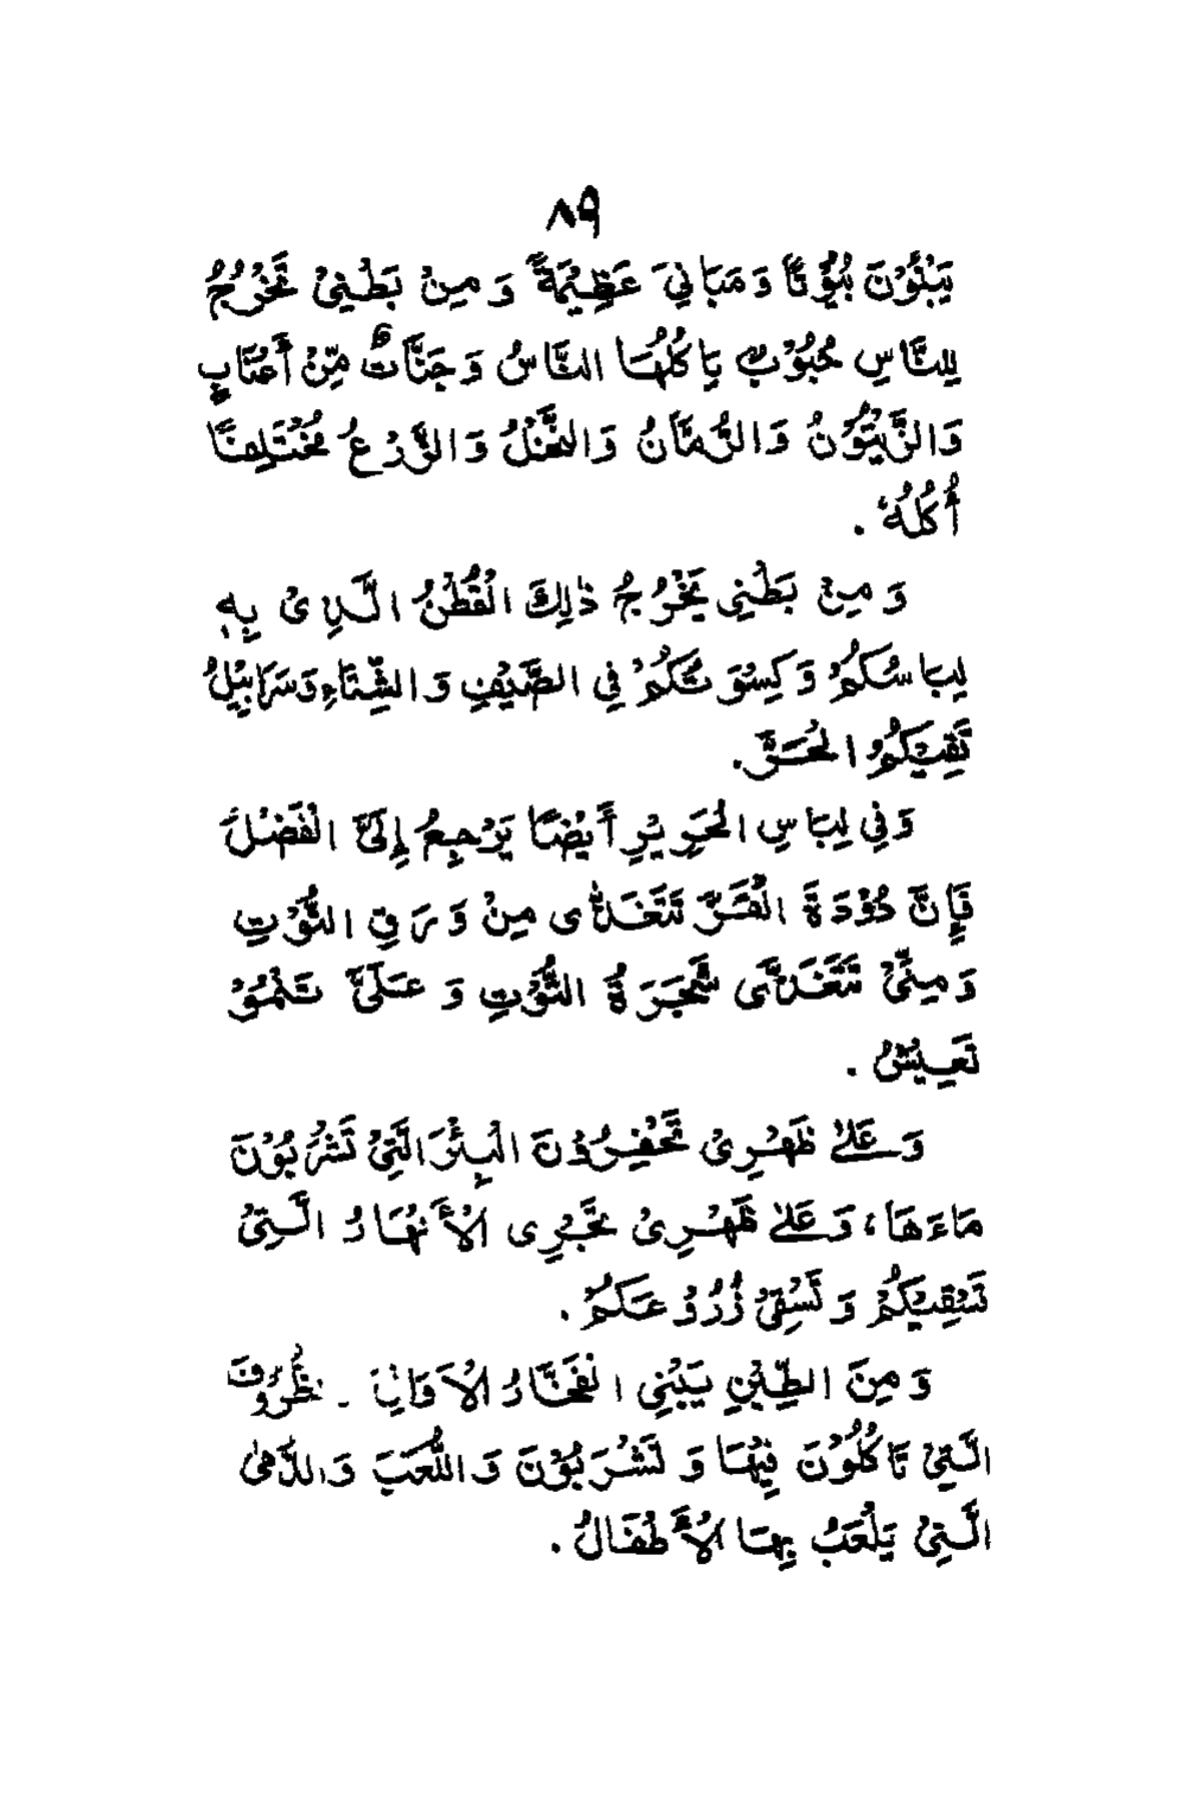 ٨٩
يَبْنُوْنَ بُيُوْتًا وَمَبَانِيَ عَظِيْمَةً وَ مِنْ بَطْنِيْ تَخْرُجُ
لِلنَّاسِ حُبُوْبٌ يَاكُلُهَا النَّاسُ وَ جَنَّاتٌ مِّنْ أَعْنَابٍ
وَالزَّيْتُوْنُ وَالرُّمَّانُ وَالنَّخْلُ وَالزَّرْعُ مُخْتَلِفًا
أُكُلُهٗ .
وَ مِنْ بَطْنِي يَخْرُجُ ذٰلِكَ الْقُطْنُ الَّذِىْ بِهٖ
لِبَاسُكُمْ وَكِسْوَتُكُمْ فِي الصَّيْفِ وَالشِّتَاءِ وَسَرَابِيْلُ
تَقِيْكُمُ الْحَرَّ.
وَفِي لِبَاسِ الْحَرِيْرِ أَيْضًا يَرْجِعُ إِلَيَّ الْفَضْلُ
فَإِنَّ دُوْدَةَ الْقَزِّ تَتَغَذّٰى مِنْ وَرَقِ التُّوْتِ
وَ مِنِّيْ تَتَغَذَّى شَجَرَةُ التُّوْتِ وَ عَلَيَّ تَنْمُوْ
تَعِيْشُ .
وَ عَلىٰ ظَهْرِىْ تَحْفِرُوْنَ الْبِئْرَ الَّتِيْ تَشْرَبُوْنَ
مَاءَهَا، وَعَلىٰ ظَهْرِىْ تَجْرِى الْأَنْهَارُ الَّتِيْ
تَسْقِيْكُمْ وَ تَسْقِيْ زُرُوْعَكُمْ .
وَ مِنَ الطِّيْنِ يَبْنِي الْفَخَّارُ الْاَوَانِيَ ـ ظُرُوْفَ
الَّتِيْ تَاكُلُوْنَ فِيْهَا وَ تَشْرَبُوْنَ وَاللُّعَبَ وَالدُّمىٰ
الَّتِيْ يَلْعَبُ بِهَا الْأَطْفَالُ .